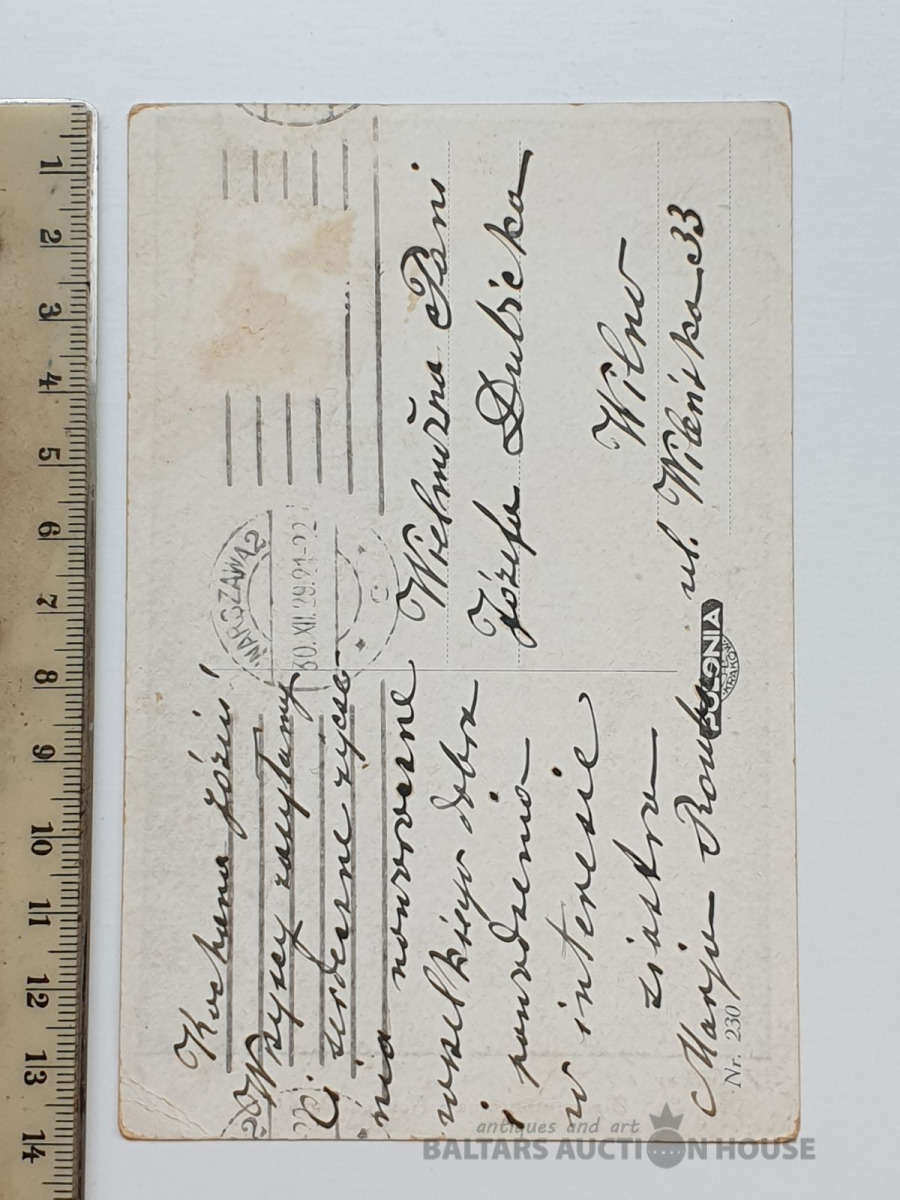 Kochana Józiu!
Wszyscy zasyłamy
Ci serdeczne życze
nia noworoczne
wszelkiego dobra
i powodzenia
w interesie
siostra
Marja
Nr. 230
WARSZAWA 2
30.XII.29.21-22
Wielmożna Pani
Józefa Dubicka
Wilno
ul. Wileńska 33
POLONIA
KRAKÓW
1 2 3 4 5 6 7 8 9 10 11 12 13 14
antiques and art
BALTARS AUCTION HOUSE